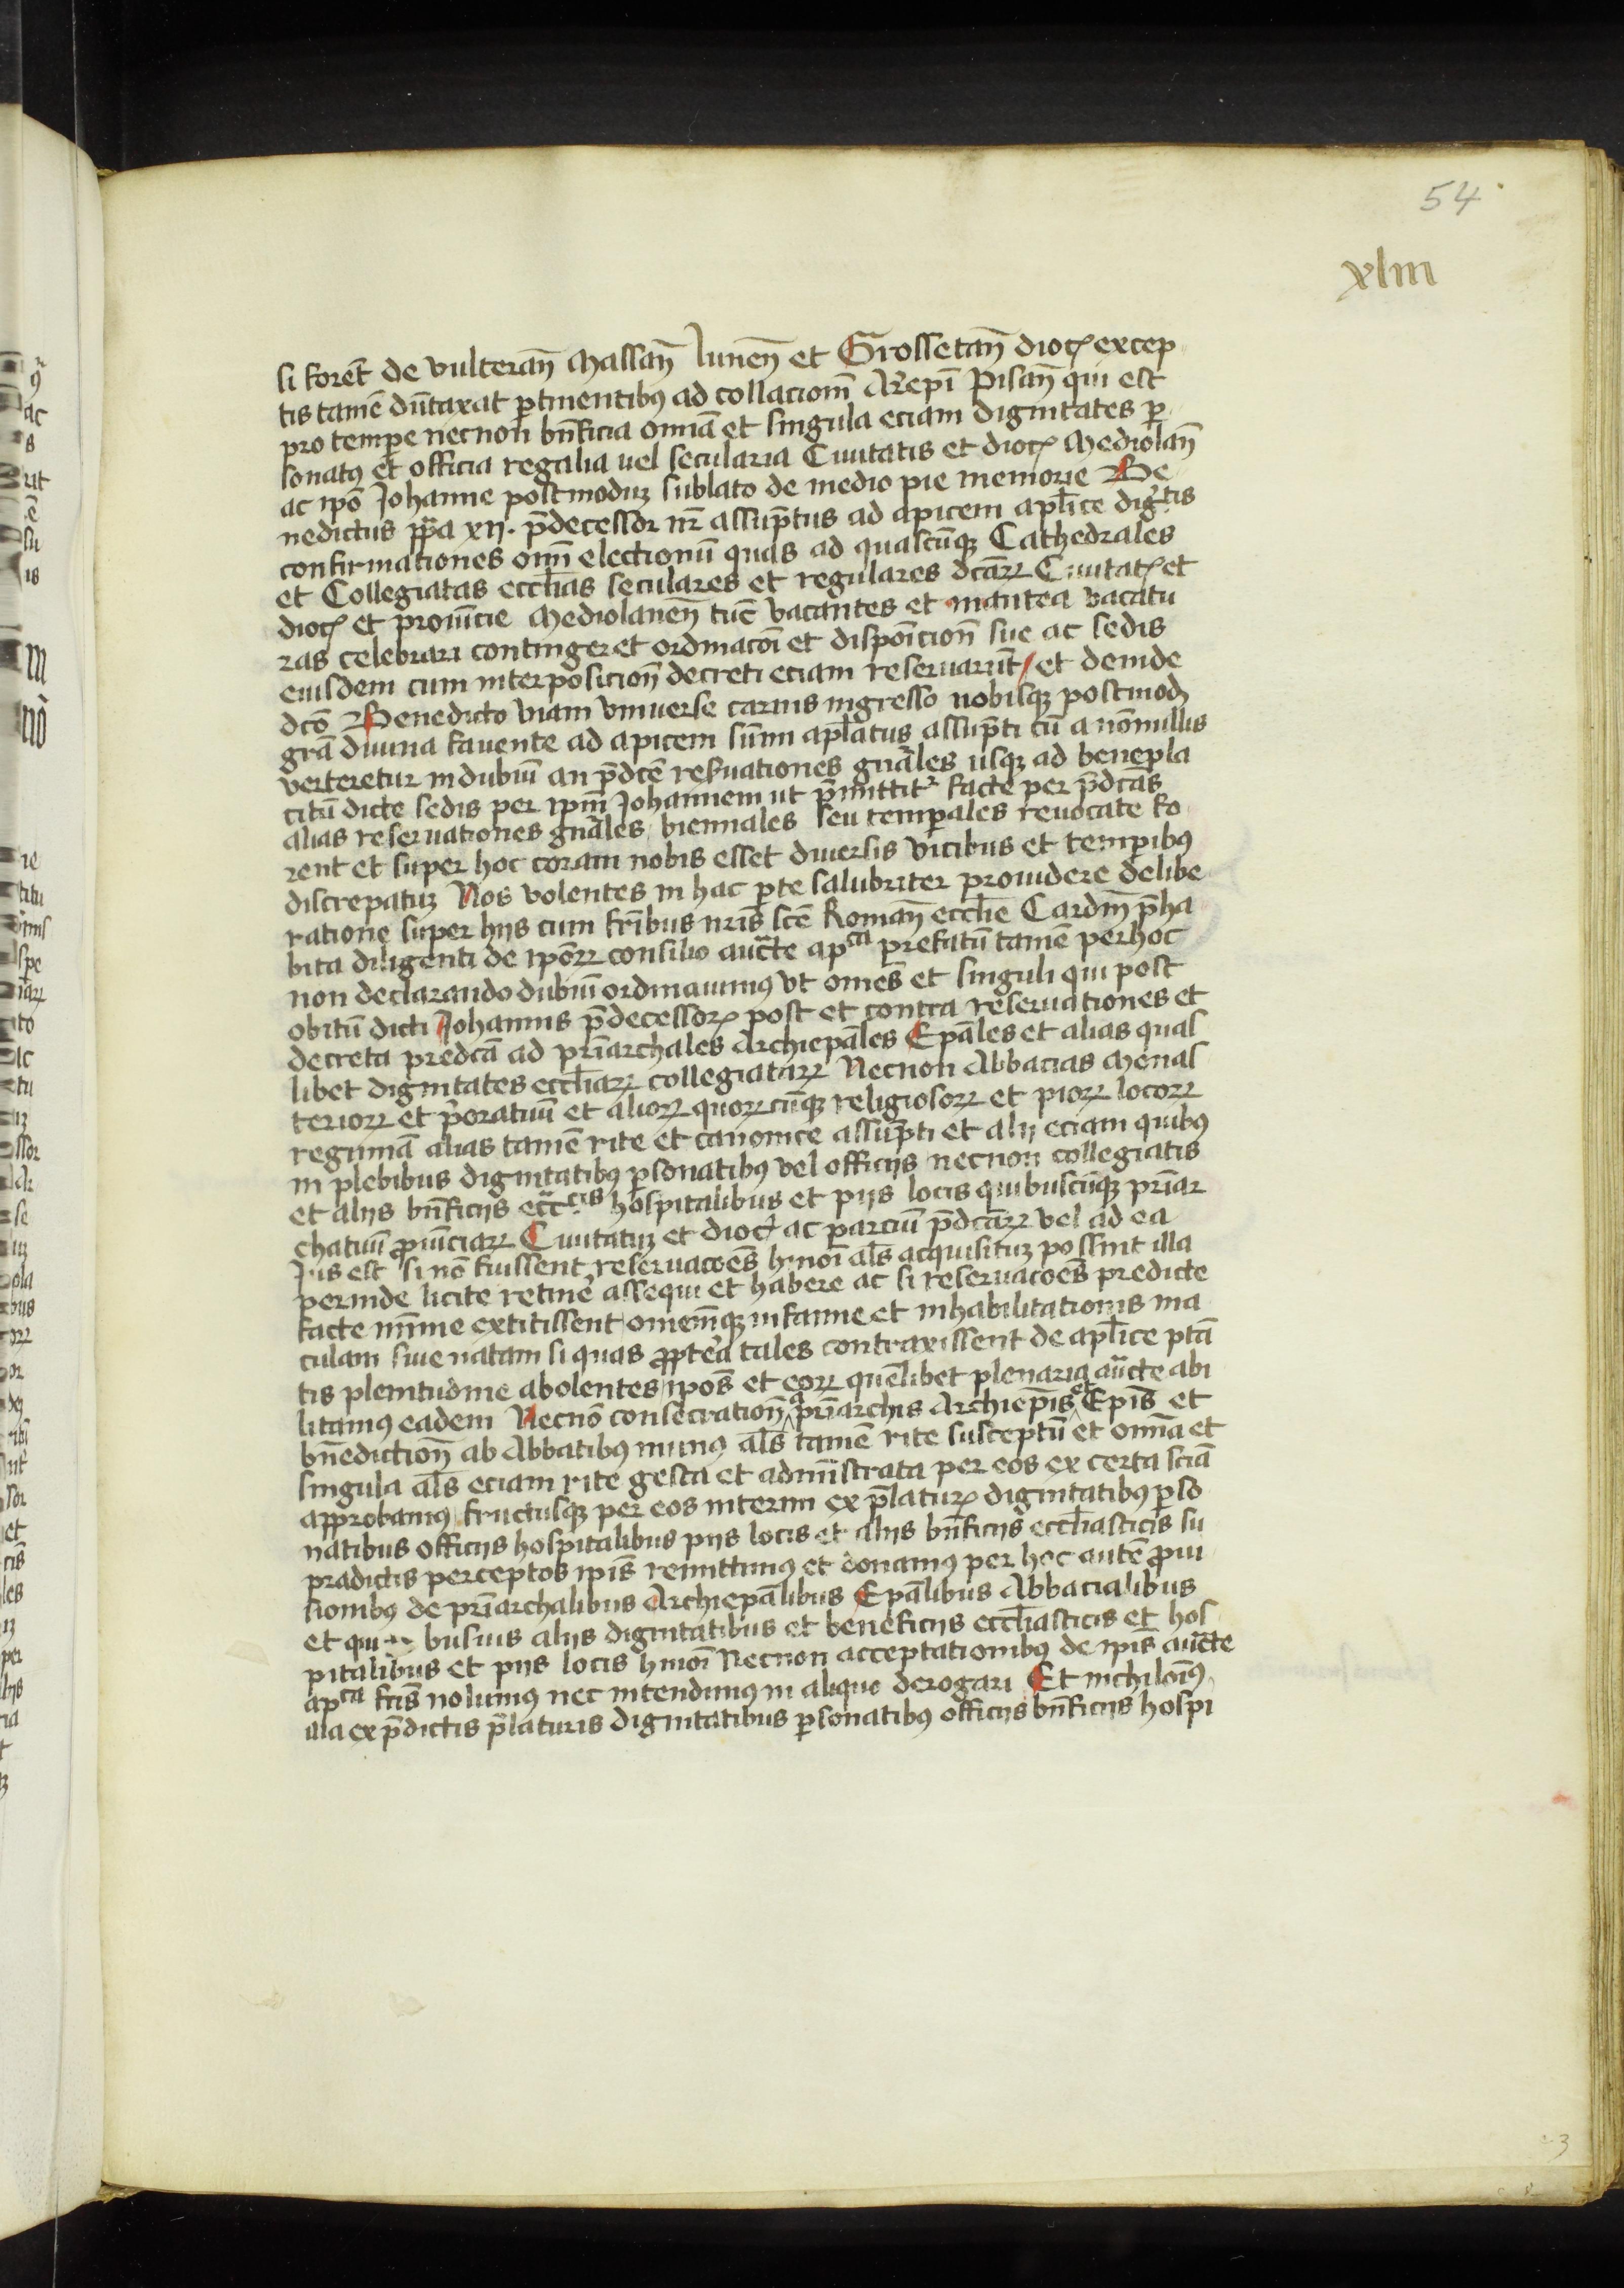 54
xliii
si forent̄ de vulteran̄ Massan̄ lunen̄ et Grossetan̄ dioc̄ excep
tis tamē dūtaxat ꝑtinentibꝰ ad collaciom̄ Ar̄epī Pisan̄ qui est
pro tempe necnon bn̄ficia om̄ia et singula eciam dignitates ꝑ
sonatꝰ et officia regalia uel secularia Ciuitatis et dioc̄ Mediolan̄
ac ip̄o Johanne postmoduꝫ sublato de medio pie memorie Be
nedictus pp̄a xij. p̄decessor nr̄ assūptus ad apicem apl̄ice dig̾tis
confirmationes om̄n electionū quas ad quascūqꝫ Cathedrales
et Collegiatas eccl̄ias seculares et regulares dc̄aꝝ Ciuitat̄ et
dioc̄ et prouīcie Mediolanen̄ tūc vacantes et inantea vacatu
ras celebrari contingeret ordinacōi et dispoīcion̄ sue ac sedis
eiusdem cum interposicion̄ decreti eciam reseruarūt / et deinde
dc̄o Benedicto viam vniuerse carnis ingresso nobisqꝫ postmod̄
gr̄a diuina fauente ad apicem sūmi apl̄atus assūpti cū a nōnullis
verteretur in dubiū an p̄dcē res̄uationes gn̄ales usqꝫ ad benepla
citū dicte sedis per ip̄m Johannem ut p̄mittitᷣ facte per p̄dcās
alias reseruationes gn̄ales biennales seu temꝑales reuocate fo
rent et super hoc coram nobis esset diuersis vicibus et temꝑibꝰ
discrepatuꝫ Nos volentes in hac ꝑte salubriter prouidere delibe
ratione super hijs cum fr̄ibus nr̄is sc̄e Roman̄ eccl̄ie Cardin̄ p̄ha
bita diligenti de ip̄oꝝ consilio auc̄te ap̄ca prefatū tamē per hoc
non declarando dubiū ordinauimꝰ vt om̄es et singuli qui post
obitū dicti Johannis p̄decessoꝝ post et contra reseruationes et
decreta predcā ad pr̄iarchales Archiep̄ales Ep̄ales et alias quas
libet dignitates eccl̄iaꝝ collegiataꝝ Necnon Abbacias Monas
terioꝝ et p̄oratuū et alioꝝ quoꝝcūqꝫ religiosoꝝ et pioꝝ locoꝝ
regimiā alias tamē rite et canonice assūpti et alij eciam quibꝰ
in plebibus dignitatibꝰ ꝑsonatibꝰ vel officijs necnon collegiatis
et alijs bn̄ficijs ecc̄cis hospitalibus et pijs locis quibuscūqꝫ pr̄iar
chatuū ꝓuīciaꝝ Ciuitatuꝫ et dioc̄ ac parciū p̄dcāꝝ vel ad ea
Jus est si nō fuissent reseruacōes hmōi al̄s acquisituꝫ possint illa
perinde licite retine᷑ assequi et habere ac si reseruacōes predicte
facte minīe extitissent / omēmqꝫ infamie et inhabilitationis ma
culam siue notam si quas ꝓpterᵃ tales contraxissent de apl̄ice ptā
tis plenitudine abolentes / ip̄os et eoꝝ quēlibet plenaria auc̄te abi
litamꝰ eadem Necnō consecration̄ ᵃ pr̄iarchis Archiep̄is et Ep̄is et
bn̄ediction̄ ab Abbatibꝰ munꝰ al̄s tamē rite susceptū et om̄ia et
singula al̄s eciam rite gesta et admīstrata per eos ex certa sciā
approbamꝰ fructusqꝫ per eos interim ex p̄laturꝭ dignitatibꝰ ꝑso
natibus officijs hospitalibus pijs locis et alijs bn̄ficijs eccl̄iasticis su
pradictis perceptos ip̄is remittimꝰ et donamꝰ per hoc autē ꝓui
sionibꝰ de pr̄iarchalibus Archiep̄alibus Ep̄alibus Abbacialibus
et qui busuis alijs dignitatibus et beneficijs eccl̄iasticis et hos
pitalibus et pijs locis hmōi Necnon acceptationibꝰ de ip̄is auc̄te
ap̄ca fc̄is nolumꝰ nec intendimꝰ in aliquo derogari Et nichilomīꝰ
illa ex p̄dictis p̄laturis dignitatibus ꝑsonatibꝰ officijs bn̄ficijs hospi